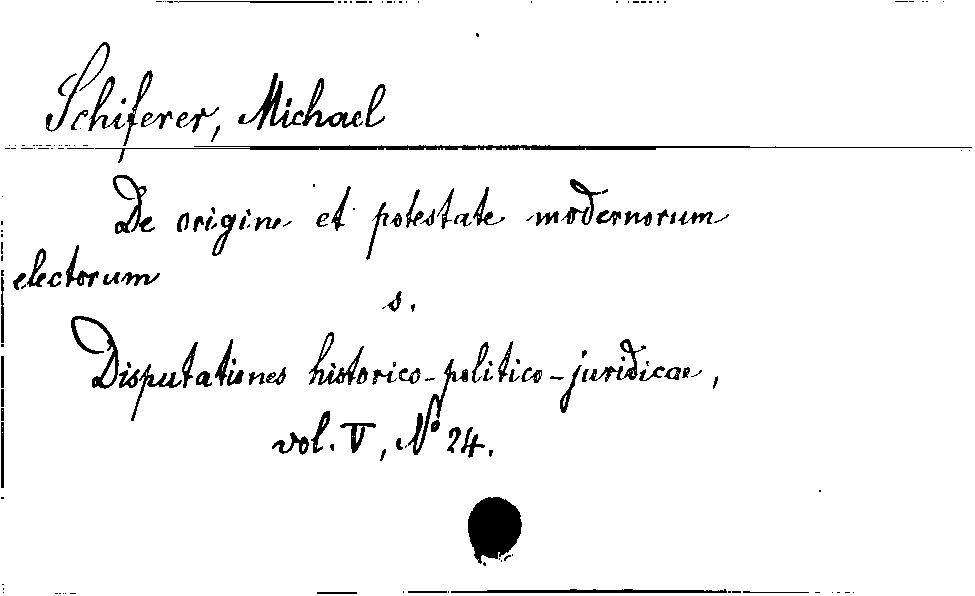 Schiferer, Michael
De origine et potestate modernorum
electorum
s.
Disputationes historico-politico-juridicae,
vol. V, No 24.